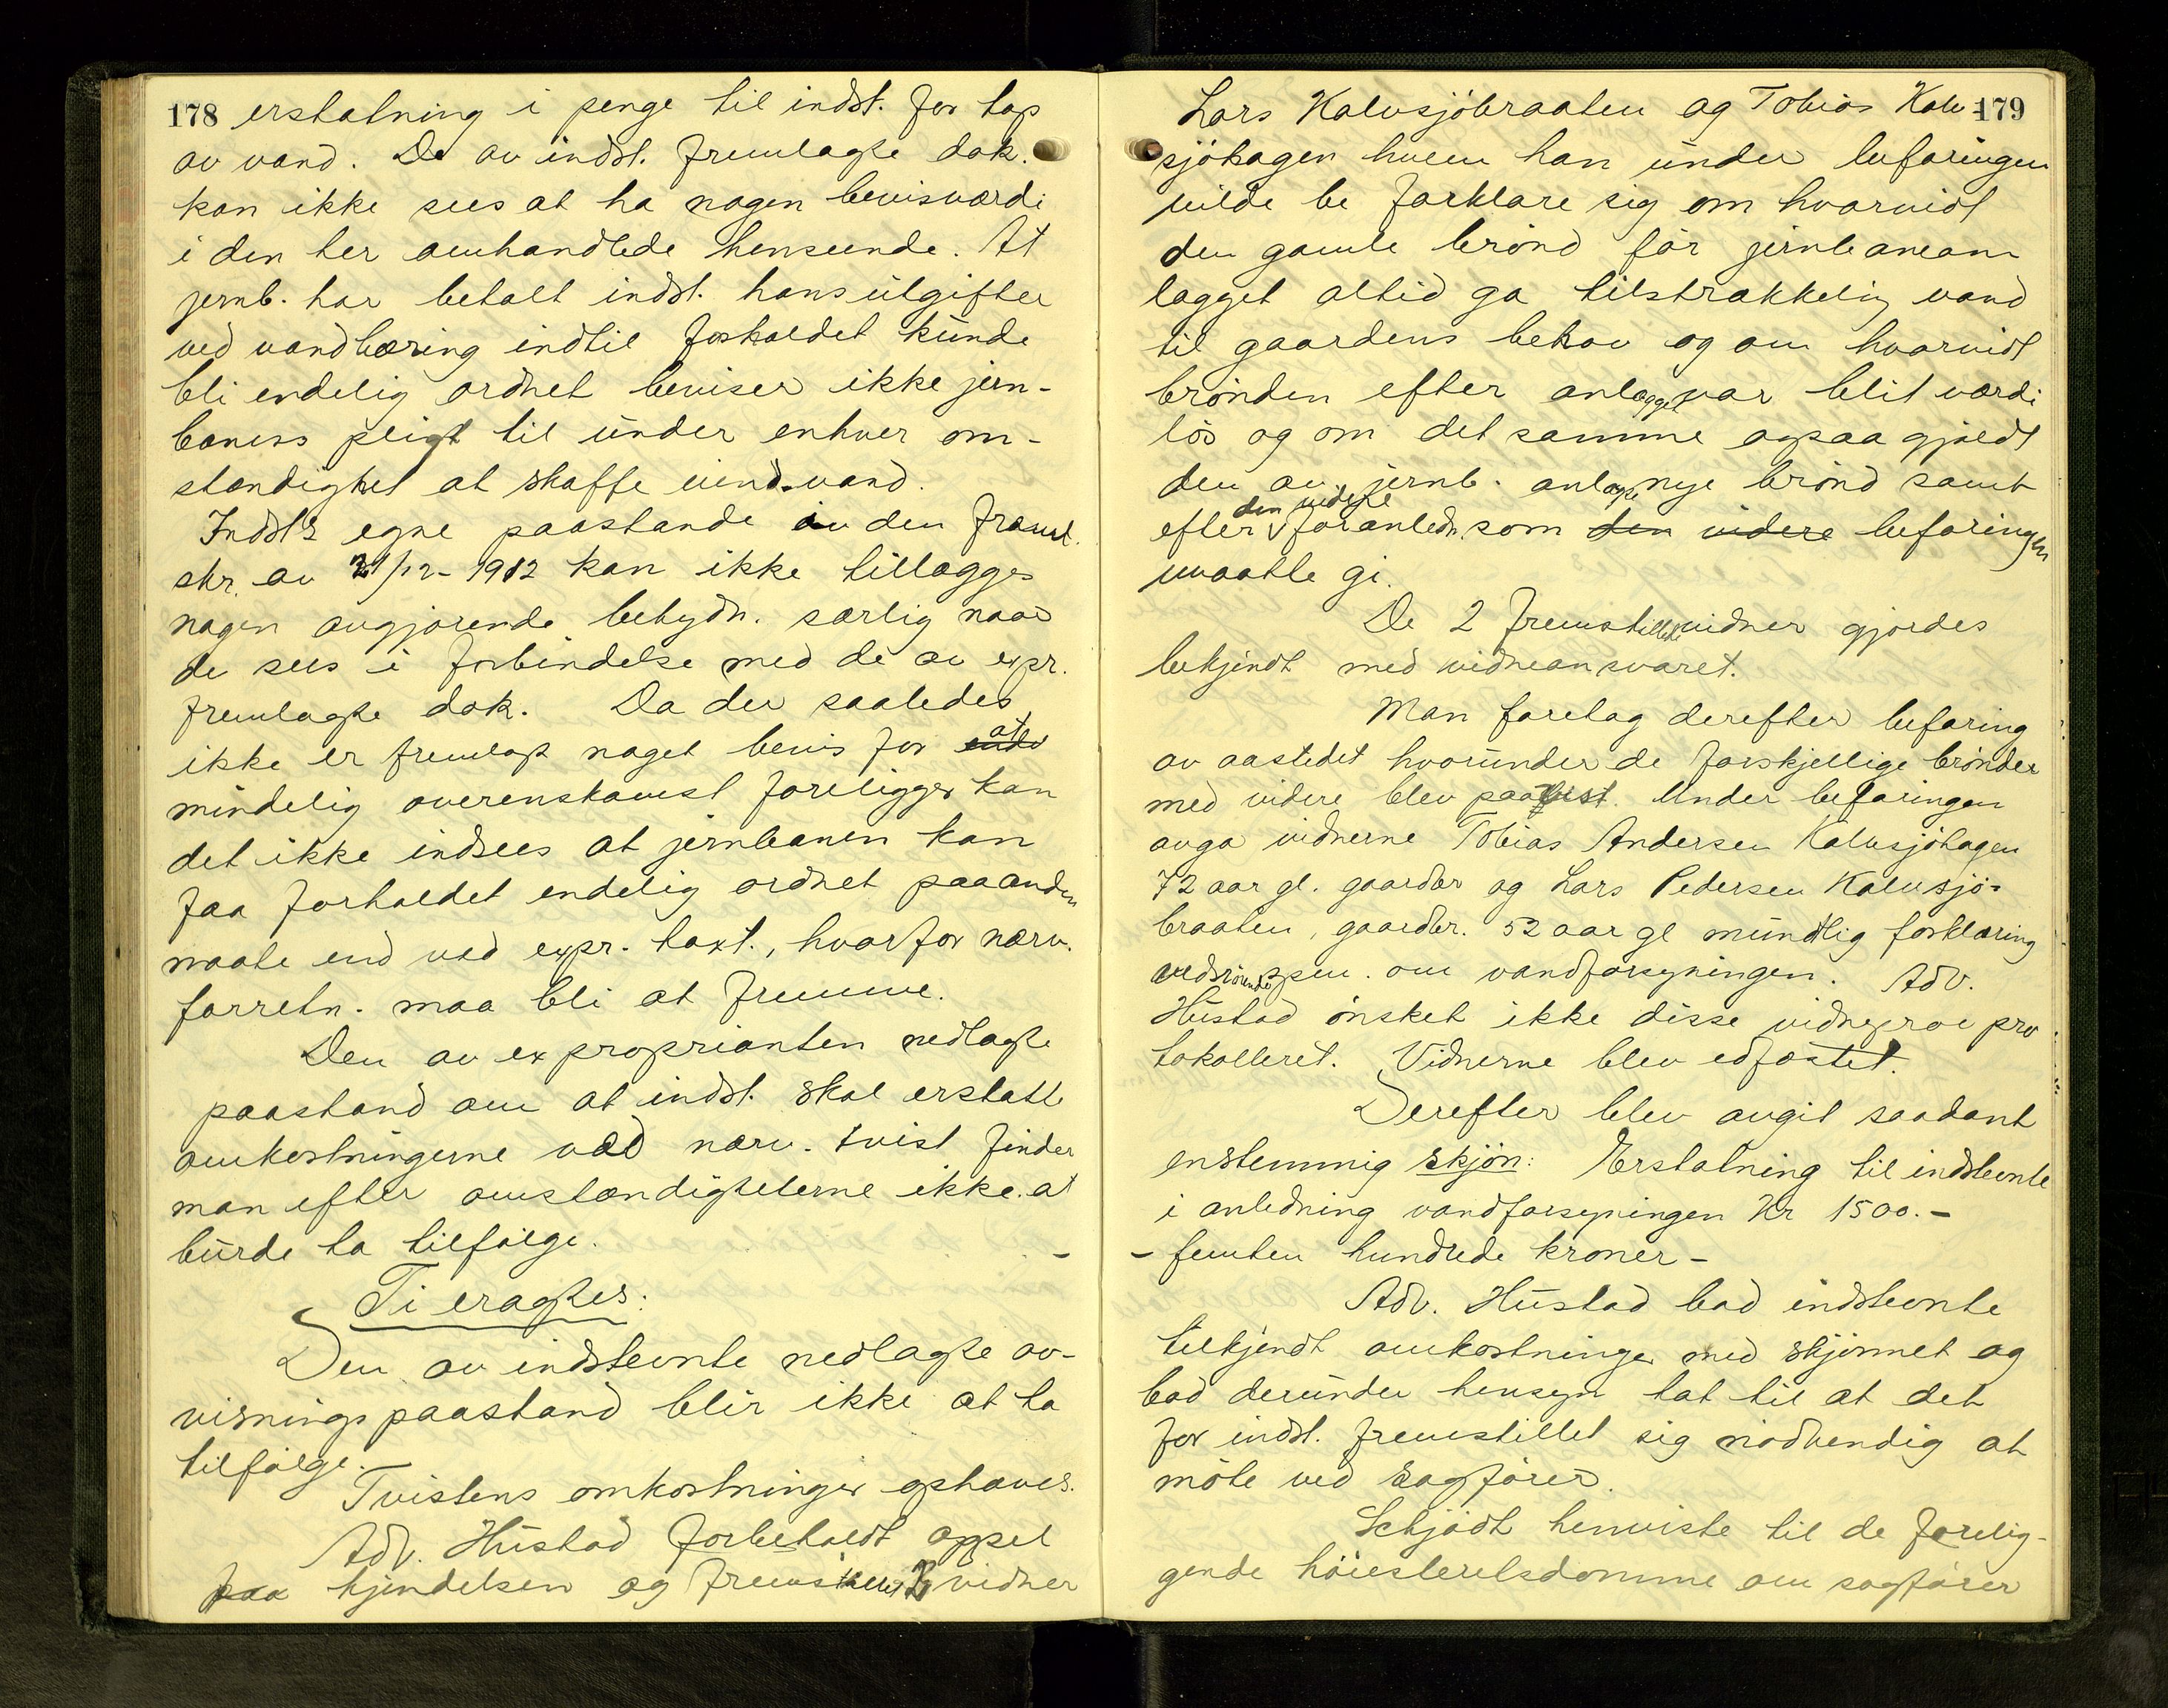 178 erstatning i penge til indst. for tap
av vand. De av indst. fremlagte dok.
kan ikke sees at ha nogen bevisværdi
i den her omhandlede henseende. At
jernb. har betalt indst. hans utgifter
ved vandbæring indtil forholdet kunde
bli endelig ordnet beviser ikke jern-
banens pligt til under enhver om-
stændighet at skaffe vand.
Indst's egne paastande i den freml.
skr. av 21/12-1912 kan ikke tillægges
nogen avgjørende betydn. særlig naar
de sees i forbindelse med de av expr.
fremlagte dok. Da der saaledes
ikke er fremlagt noget bevis for at
mindelig overenskomst foreligger kan
det ikke indsees at jernbanen kan
faa forholdet endelig ordnet paa anden
maate end ved expr. taxt., hvorfor nærv.
forretn. maa bli at fremme.
Den av exproprianten nedlagte
paastand om at indst. skal erstatte
omkostningerne ved nærv. tvist finder
man efter omstændigheterne ikke at
burde ta tilfølge. -
Ti eragtes:
Den av indstevnte nedlagte av-
visningspaastand blir ikke at ta
tilfølge.
Tvistens omkostninger ophæves.
Adv. Hustad forbeholdt appel
paa kjendelsen og fremstillet 2 vidner
Lars Kalvsjøbraaten og Tobias Kalv= 179
sjøhagen hvem han under befaringen
vilde be forklare sig om hvorvidt
den gamle brønd før jernbanean
lægget altid ga tilstrækkelig vand
til gaardens behov og om hvorvidt
brønden efter anlægget var blit værdi
løs og om det samme ogsaa gjældt
den av jernb. anlagte nye brønd samt
efter den videre foranledn. som den videre befaringen
maatte gi.
De 2 fremstillede vidner gjordes
bekjendt med vidneansvaret.
Man foretog derefter befaring
av aastedet hvorunder de forskjellige brønder
med videre blev paavist. Under befaringen
avga vidnerne Tobias Andersen Kalvsjøhagen
72 aar gl. gaardbr og Lars Pedersen Kalvsjø=
braaten, gaardbr. 52 aar gl mundtlig forklaring
vedrørende spm. om vandforsyningen. Adv.
Hustad ønsket ikke disse vidneprov pro
tokolleret. Vidnerne blev edfæstet.
Derefter blev avgit saadant
enstemmig skjøn: Erstatning til indstevnte
i anledning vandforsyningen Kr 1500.-
- femten hundrede kroner -
Adv. Hustad bad indstevnte
tilkjendt omkostninger med skjønnet og
bad derunder hensyn tat til at det
for indst. fremstillet sig nødvendig at
møte ved sagfører.
Schjødt henviste til de forelig-
gende høiesteretsdomme om sagfører